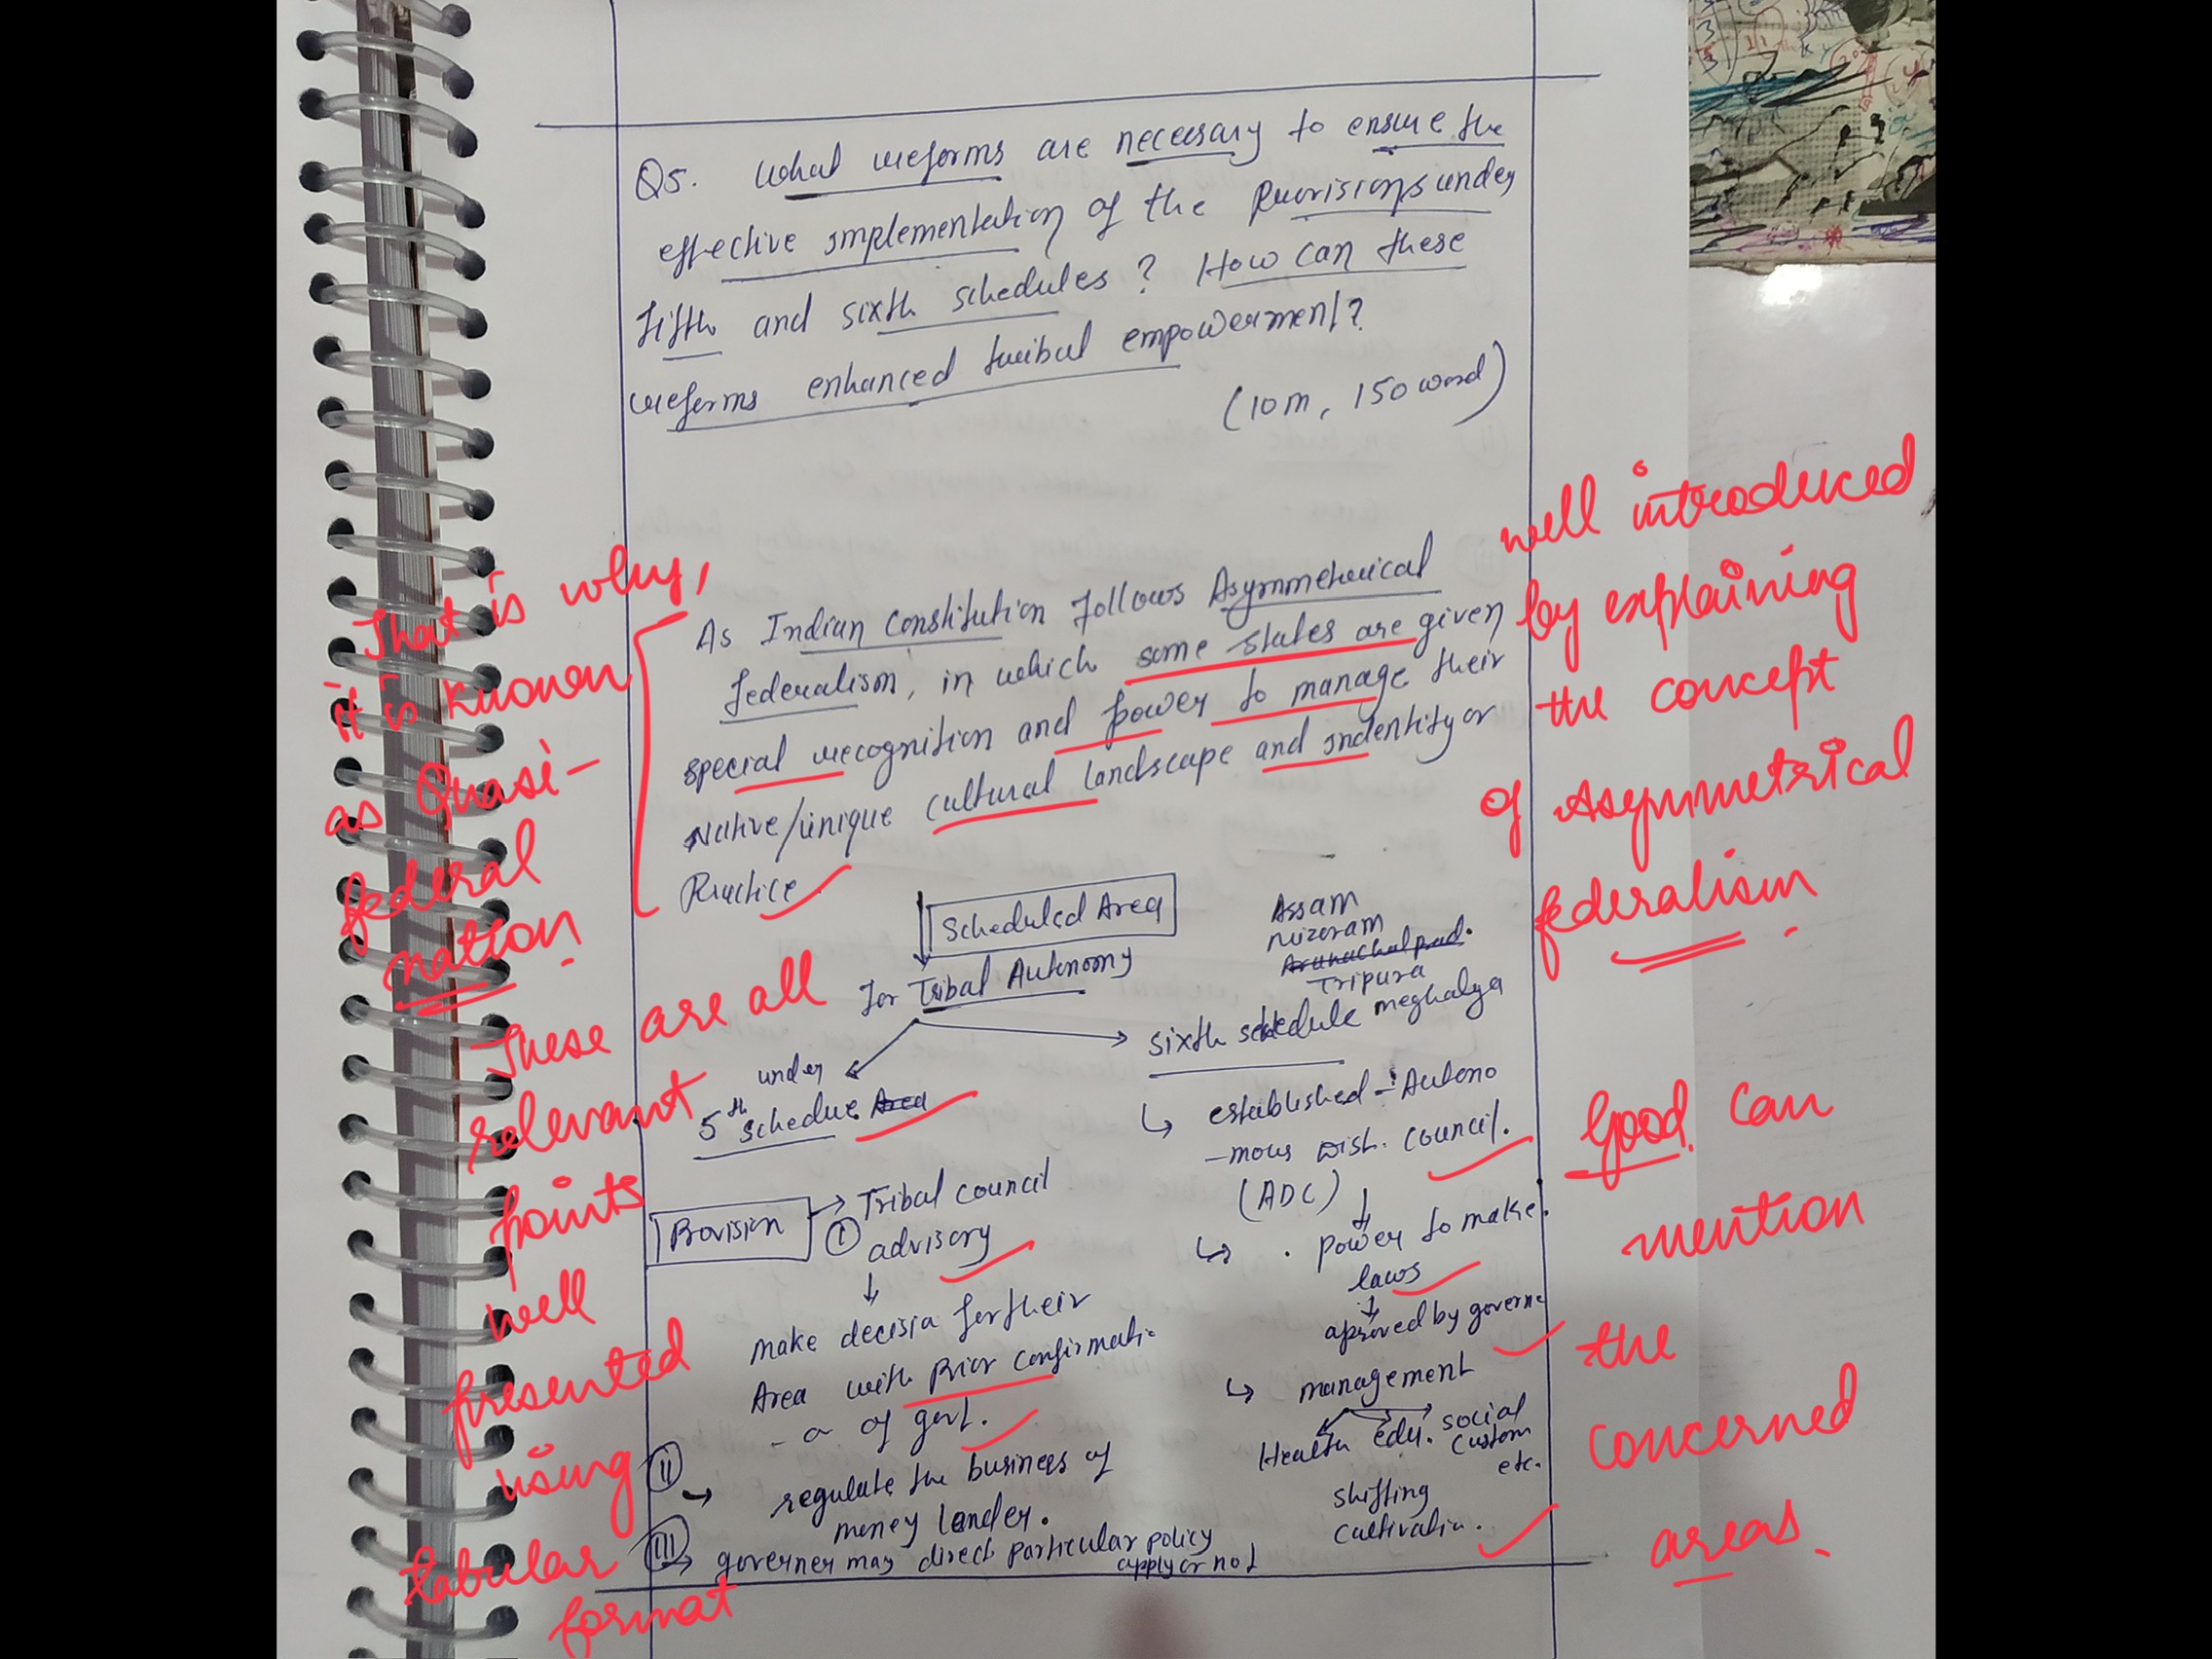 Q5. What reforms are necessary to ensure the
effective implementation of the provisions under
Fifth and sixth schedules? How can these
reforms enhanced tribal empowerment?
(10m, 150 word)
As Indian Constitution follows Asymmetrical
federalism, in which some states are given
special recognition and power to manage their
Native/unique cultural landscape and indentity or
Practice.
Scheduled Area
for Tribal Autonomy
Assam
mizoram
Arunachal prad.
Tripura
meghalya
sixth schedule
under
5th schedue Area
established - Autono
-mous Dist. council.
(ADC)
power to make
laws
aproved by governe
management
Health edu. social
custom
etc.
shifting
cultivatin.
Provision
I Tribal council
advisory
make decisin for their
Area with prior confirmati
-on of govt.
II
regulate the business of
money lender.
III governer may direct particular policy
apply or not
That is why,
it is known
as Quasi-
federal
nation.
These are all
relevant
points
well
presented
using
tabular
format
well introduced
by explaining
the concept
of Asymmetrical
federalism.
Good. Can
mention
the
concerned
areas.